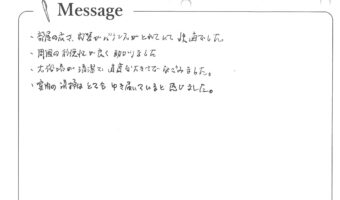 Message
・部屋の広さ、配置がバランスがとれていて快適でした。
・周囲の利便性が良く助かりました
・大浴場が清潔で、適度な大きさでなごみました。
・室内の清掃はとても ゆき届いていると感じました。